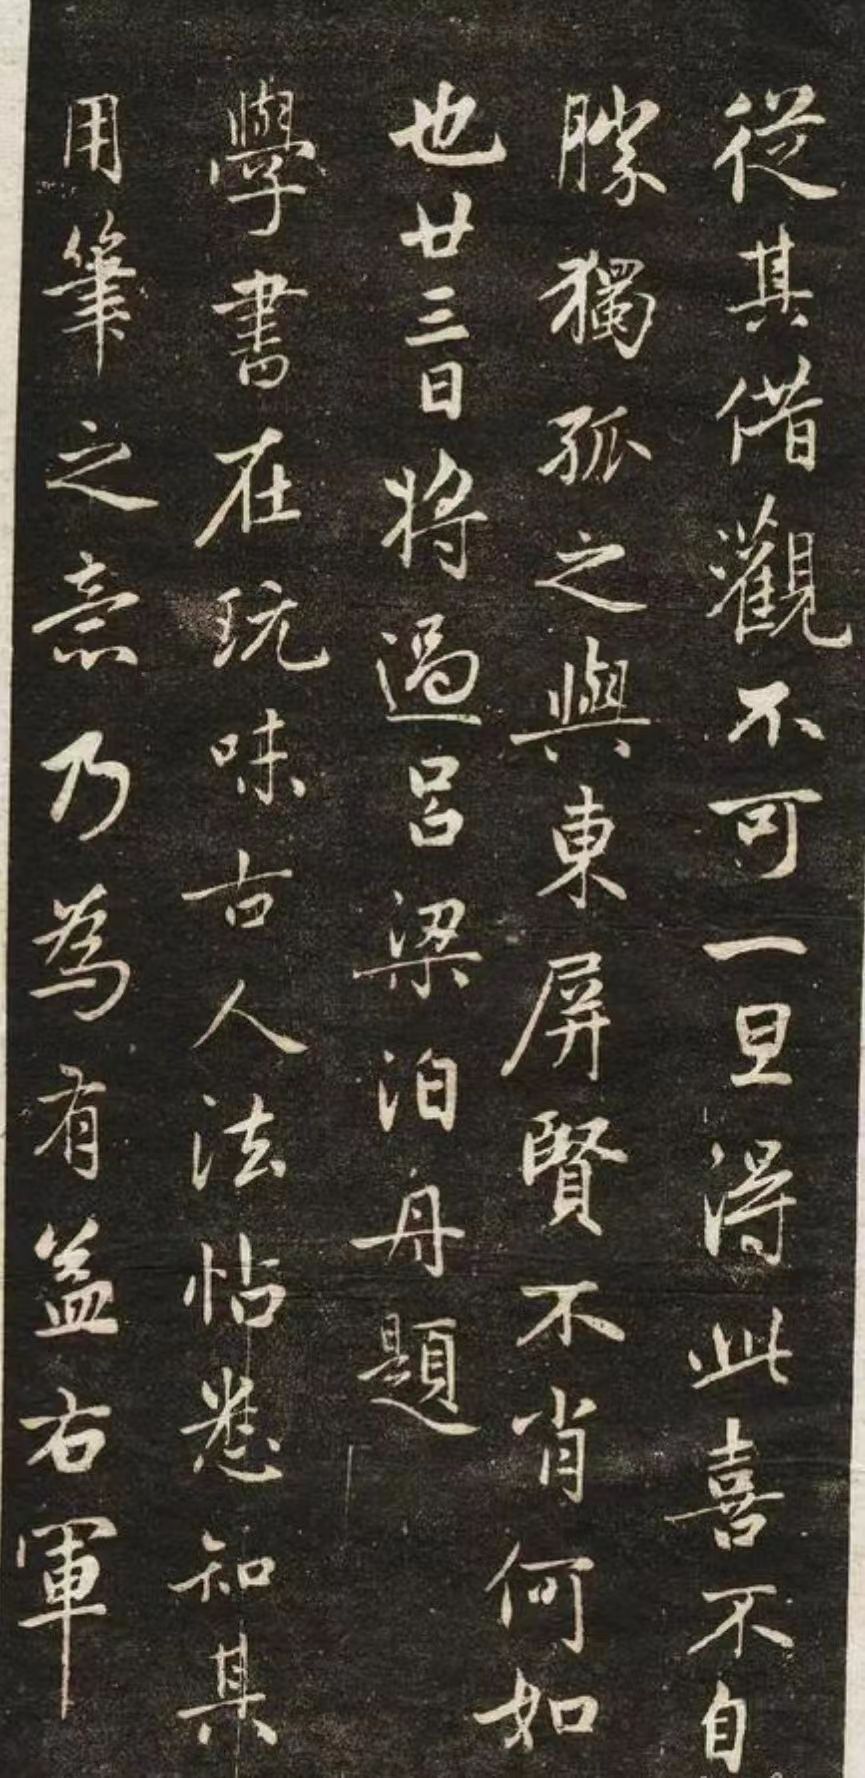 從其借觀不可一旦得此喜不自
勝獨孤之與東屏賢不肖何如
也廿三日將過呂梁泊舟題
學書在玩味古人法帖悉知其
用筆之意乃為有益右軍